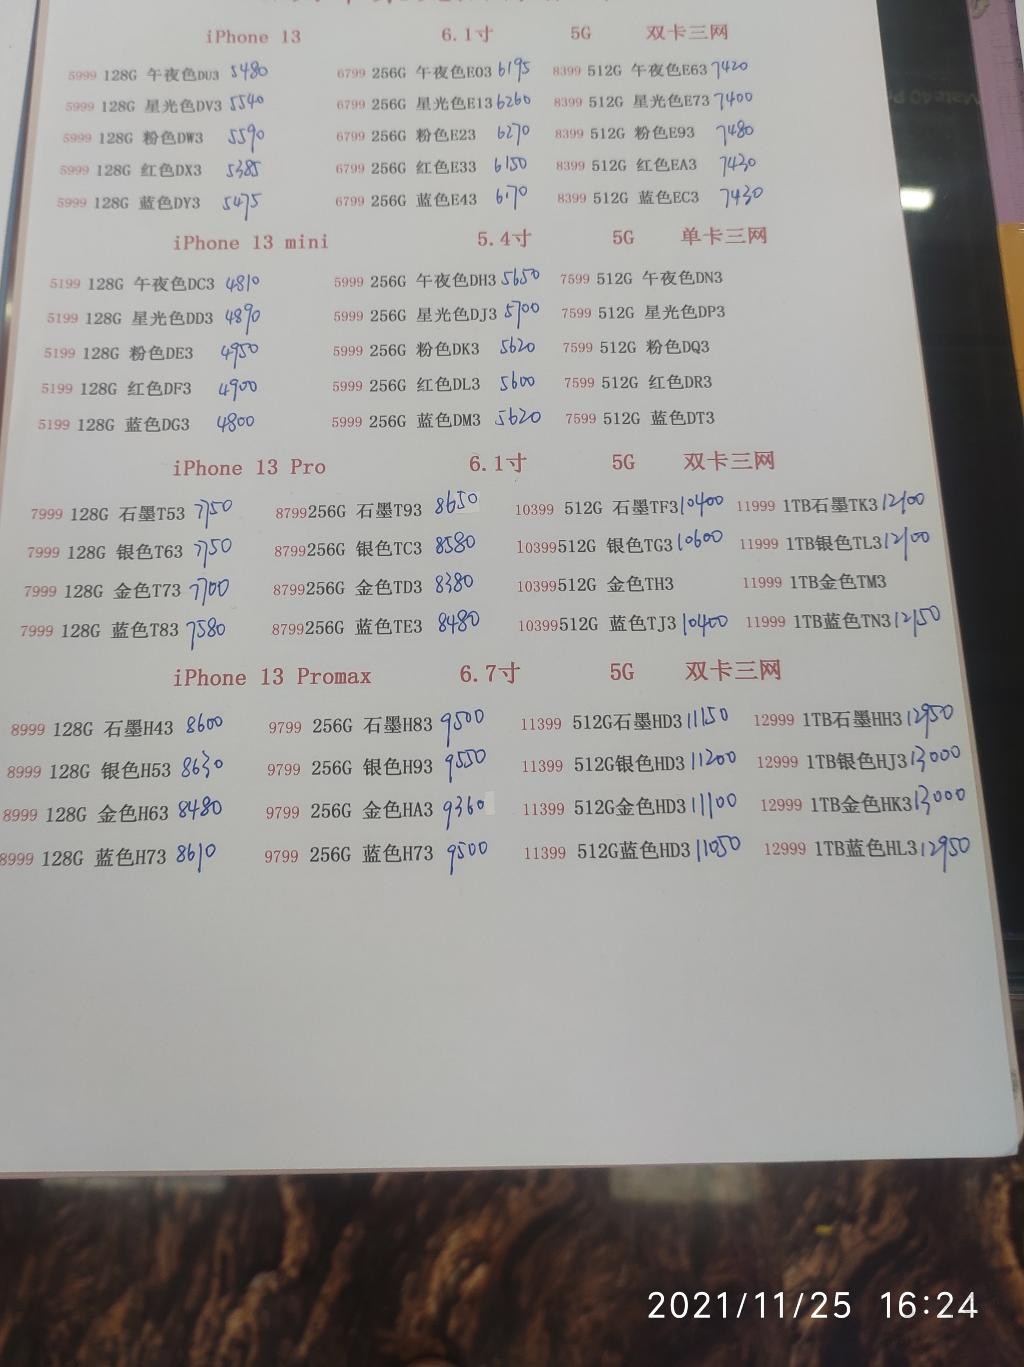 iPhone 13 6.1寸 5G 双卡三网
5999 128G 午夜色DU3 5480 6799 256G 午夜色E03 6195 8399 512G 午夜色E63 7420
5999 128G 星光色DV3 5540 6799 256G 星光色E13 6260 8399 512G 星光色E73 7400
5999 128G 粉色DW3 5590 6799 256G 粉色E23 6270 8399 512G 粉色E93 7480
5999 128G 红色DX3 5385 6799 256G 红色E33 6150 8399 512G 红色EA3 7430
5999 128G 蓝色DY3 5475 6799 256G 蓝色E43 6170 8399 512G 蓝色EC3 7430
iPhone 13 mini 5.4寸 5G 单卡三网
5199 128G 午夜色DC3 4810 5999 256G 午夜色DH3 5650 7599 512G 午夜色DN3
5199 128G 星光色DD3 4890 5999 256G 星光色DJ3 5700 7599 512G 星光色DP3
5199 128G 粉色DE3 4950 5999 256G 粉色DK3 5620 7599 512G 粉色DQ3
5199 128G 红色DF3 4900 5999 256G 红色DL3 5600 7599 512G 红色DR3
5199 128G 蓝色DG3 4800 5999 256G 蓝色DM3 5620 7599 512G 蓝色DT3
iPhone 13 Pro 6.1寸 5G 双卡三网
7999 128G 石墨T53 7750 8799256G 石墨T93 8650 10399 512G 石墨TF3 10400 11999 1TB石墨TK3 12100
7999 128G 银色T63 7750 8799256G 银色TC3 8580 10399512G 银色TG3 10600 11999 1TB银色TL3 12100
7999 128G 金色T73 7700 8799256G 金色TD3 8380 10399512G 金色TH3 11999 1TB金色TM3
7999 128G 蓝色T83 7580 8799256G 蓝色TE3 8480 10399512G 蓝色TJ3 10400 11999 1TB蓝色TN3 12150
iPhone 13 Promax 6.7寸 5G 双卡三网
8999 128G 石墨H43 8600 9799 256G 石墨H83 9500 11399 512G石墨HD3 11150 12999 1TB石墨HH3 12950
8999 128G 银色H53 8630 9799 256G 银色H93 9550 11399 512G银色HD3 11200 12999 1TB银色HJ3 13000
8999 128G 金色H63 8480 9799 256G 金色HA3 9360 11399 512G金色HD3 11100 12999 1TB金色HK3 13000
8999 128G 蓝色H73 8610 9799 256G 蓝色H73 9500 11399 512G蓝色HD3 11050 12999 1TB蓝色HL3 12950
2021/11/25 16:24